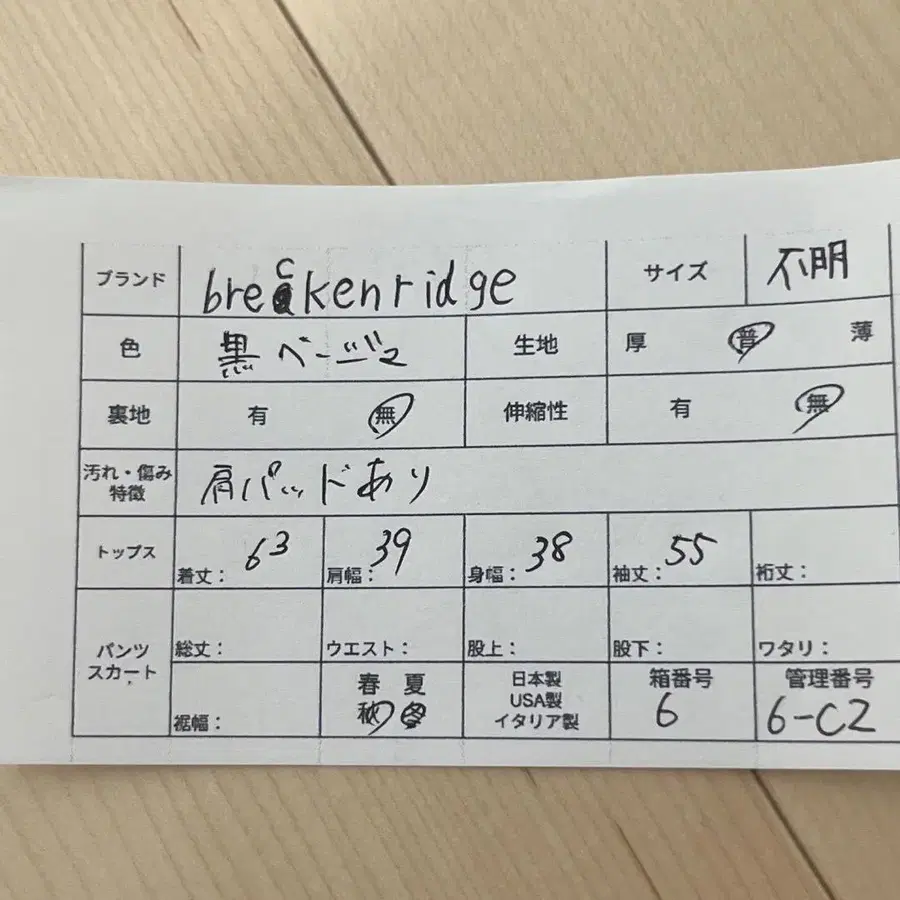 ブランド breckenridge サイズ 不明
色 黒 ベージュ 生地 厚 普 薄
裏地 有 無 伸縮性 有 無
汚れ・傷み
特徴 肩パッドあり
トップス 着丈： 63 肩幅： 39 身幅： 38 袖丈： 55 裄丈：
パンツ
スカート 総丈： ウエスト： 股上： 股下： ワタリ：
裾幅： 春 夏
秋 冬
日本製
USA製
イタリア製
箱番号
6
管理番号
6-C2